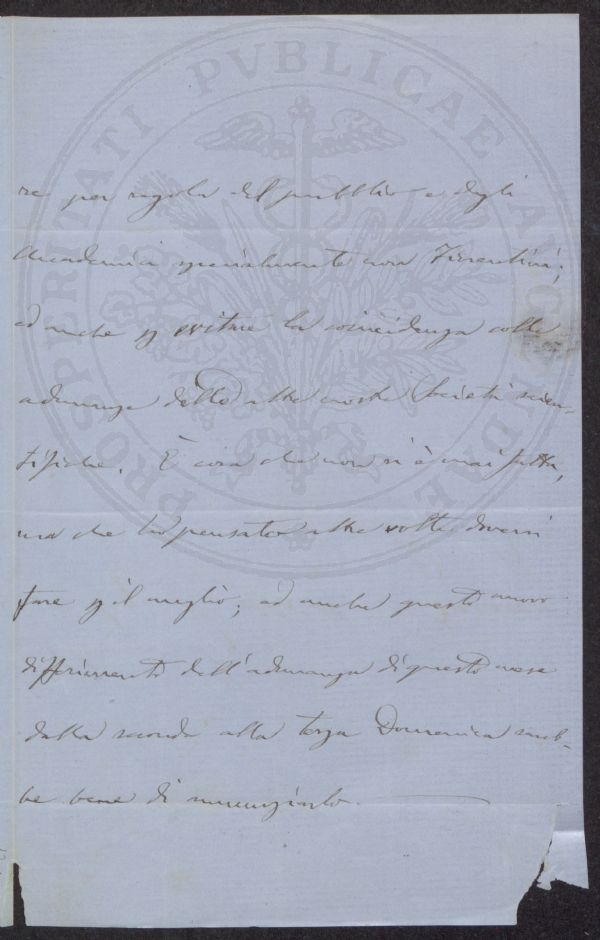 PROSPERITATI PVBLICAE AVGENDAE
re per regola del pubblico e degli
Accademici specialmente non Fiorentini;
ed anche p evitare la coincidenza colle
adunanze delle altre nostre Società scien-
tifiche. È cosa che non si è mai fatta,
ma che ho pensato altre volte doversi
fare p il meglio; ed anche questo nuovo
differimento dell'adunanza di questo mese
dalla seconda alla terza Domenica sareb-
be bene di annunziarlo.